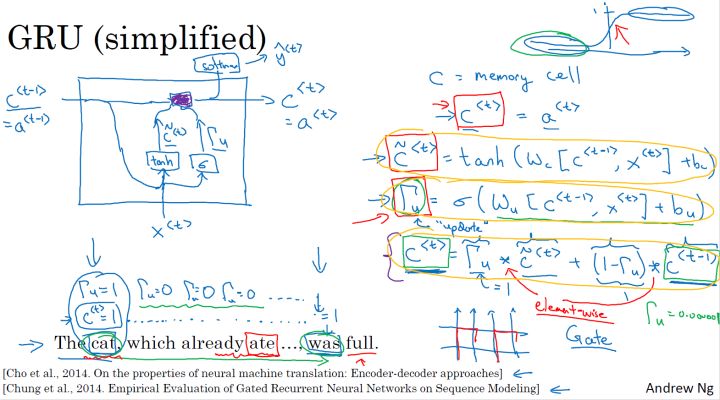 GRU (simplified)
softmax → ŷ<t>
c<t-1>
= a<t-1>
c<t>
= a<t>
c̃<t>
Γu
tanh
σ
x<t>
C = memory cell
c<t> = a<t>
c̃<t> = tanh(Wc[c<t-1>, x<t>] + bc)
Γu = σ(Wu[c<t-1>, x<t>] + bu)
"update"
c<t> = Γu * c̃<t> + (1-Γu) * c<t-1>
element-wise
Gate
Γu = 1
Γu=0 Γu=0 Γu=0 .....
c<t> = 1
= 1
The cat, which already ate ...., was full.
[Cho et al., 2014. On the properties of neural machine translation: Encoder-decoder approaches]
[Chung et al., 2014. Empirical Evaluation of Gated Recurrent Neural Networks on Sequence Modeling]
Andrew Ng